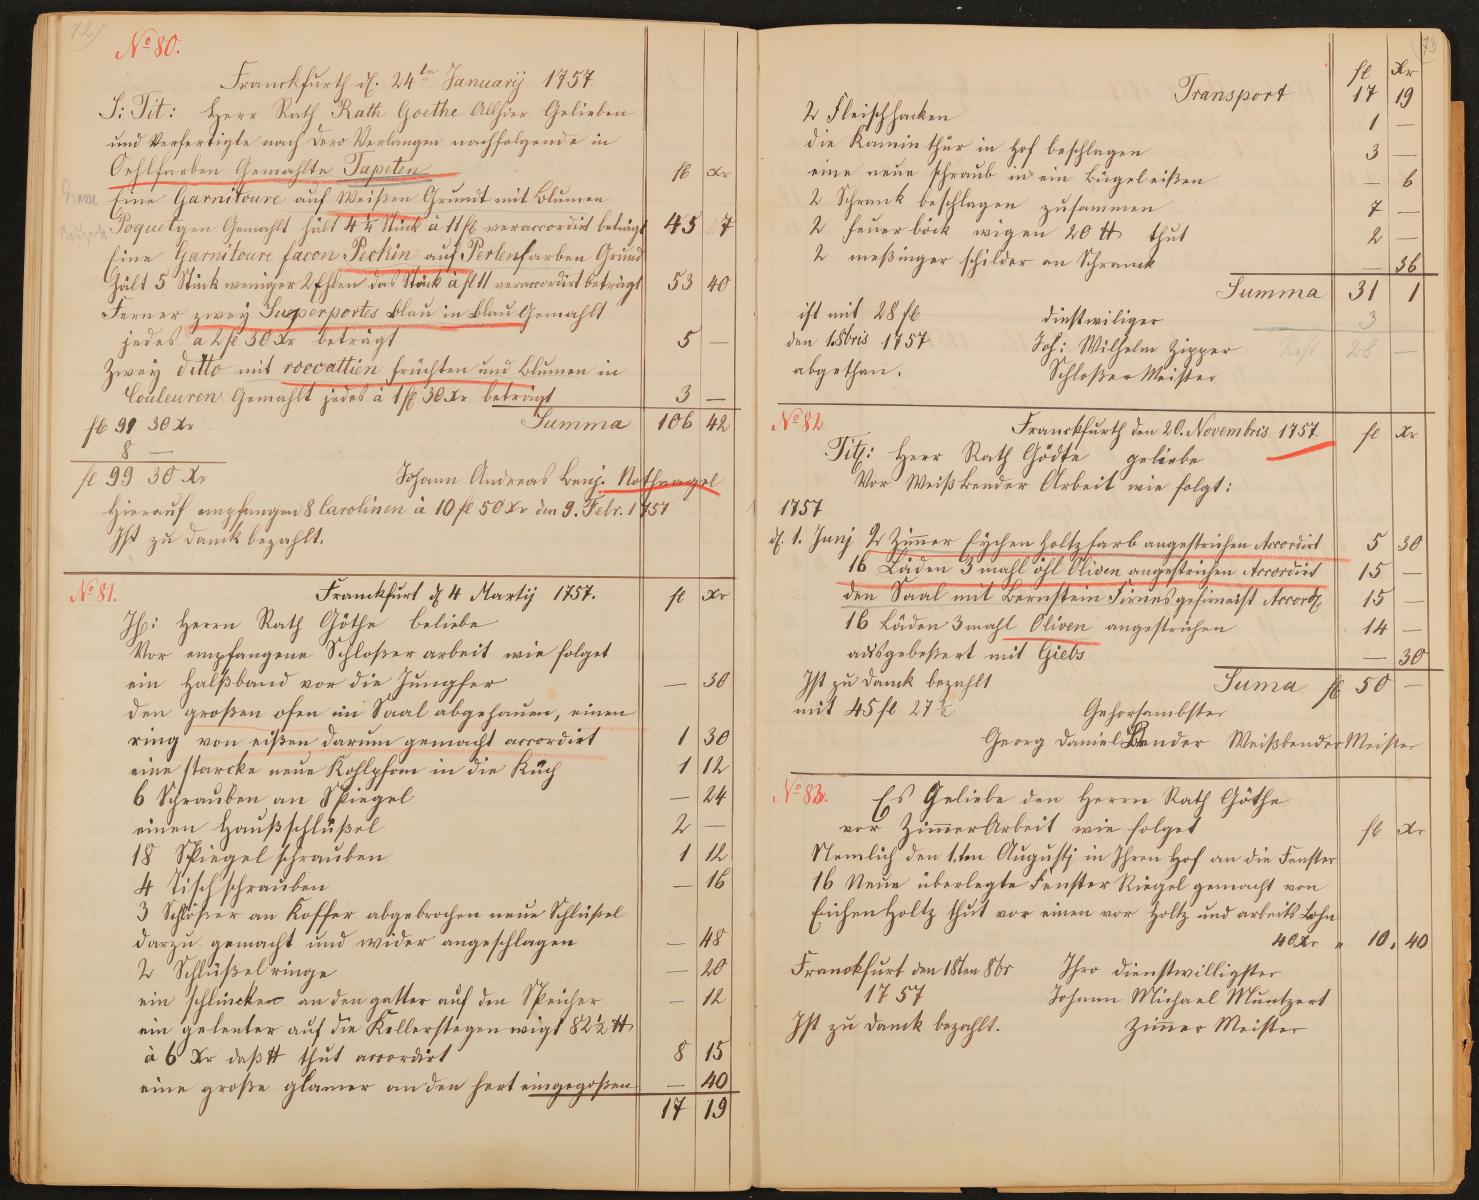 72)
No 80.
Franckfurth d. 24ten Januarÿ 1757.
S: Tit: Herr Rath Rath Goethe Allhier Gelieben
und Verfertigte nach Dero Verlangen nachfolgende in
Oehlfarben Gemahlte Tapeten
fl Xr
Eine Garnitoure auf Weißen Grundt mit Blumen
Poquetgen Gemahlt hält 4¼ Stück à 11 fl veraccordirt beträgt 45 7
Eine Garnitoure facon Peckin auf Perlenfarben Grund
Hält 5 Stück weniger 2 Ehlen das Stück à fl 11 veraccordirt beträgt 53 40
Ferner zwey Supperportes blau in blau Gemahlt
jedes à 2 fl 30 Xr beträgt 5 —
Zwey ditto mit roccattien früchten und Blumen in
Couleuren Gemahlt jedes à 1 fl 30 Xr beträgt 3 —
Summa 106 42
fl 91 30 Xr
8 —
fl 99 30 Xr
Johann Andreas Benj. Nothnagel
Hierauf empfangen 8 Carolinen à 10 fl 50 Xr den 9. Febr. 1757
Ist zu Danck bezahlt.
No 81.
Franckfurt d 4 Martij 1757.
fl Xr
Tit: Herrn Rath Göthe beliebe
Vor empfangene Schloßer arbeit wie folget
ein Halßband vor die Jungfer — 30
den großen ofen im Saal abgehauen, einen
ring von eißen darum gemacht accordirt 1 30
eine starcke neue Kohlpfan in die Küch 1 12
6 Schrauben an Spiegel — 24
einen Haußschlüßel 2 —
18 Spiegel schrauben 1 12
4 Tisch schrauben — 16
3 Schlößer an Koffer abgebrochen neue Schlüßel
darzu gemacht und wider angeschlagen — 48
2 Schlüßelringe — 20
ein schlincken an den gatter auf den Speicher — 12
ein gelenter auf die Kellerstegen wigt 82½ ℔
à 6 Xr daß ℔ thut accordirt 8 15
eine große glamer an den hert eingegoßen — 40
17 19
(73
fl Xr
Transport 17 19
2 Fleischhacken 1 —
die Kaminthür in Hof beschlagen 3 —
eine neue schraub in ein Bügeleißen — 6
2 Schrank beschlagen zusammen 7 —
2 feuerböck wigen 20 ℔ thut 2 —
2 meßinger schilder an Schranck — 36
Summa 31 1
3
Rest 28 —
ist mit 28 fl
den 1. 8bris 1757
abgethan.
dinstwiliger
Joh: Wilhelm Zipper
Schloßer Meister
No 82
Franckfurth den 20. Novembris 1757.
fl Xr
Titl: Herr Rath Gödte geliebe
Vor Weißbender Arbeit wie folgt:
1757
d. 1. Junj 2 Zimmer Eychen Holtzfarb angestrichen Accordirt 5 30
16 Läden 3 mahl öhl Oliven angestrichen Accordirt 15 —
den Saal mit Bernstein Firnes gefirneist Accord. 15 —
16 Läden 3 mahl Oliven angestrichen 14 —
ausgebeßert mit Giebs — 30
Suma fl 50 —
Ist zu Danck bezahlt
mit 45 fl 27½
Gehorsambster
Georg Daniel Bender Weißbender Meister
No 83.
Es Geliebe den Herrn Rath Göthe
vor Zimmer Arbeit wie folget
fl Xr
Nemlich den 1.ten Augustj in Ihren Hof an die Fenster
16 Neue überlegte Fenster Riegel gemacht von
Eichen Holtz thut vor einen vor Holtz und arbeits Lohn
40 Xr " 10. 40
Franckfurt den 18ten 8br
1757
Ihro dienstwilligster
Johann Michael Muntzert
Zimmer Meister
Ist zu Danck bezahlt.